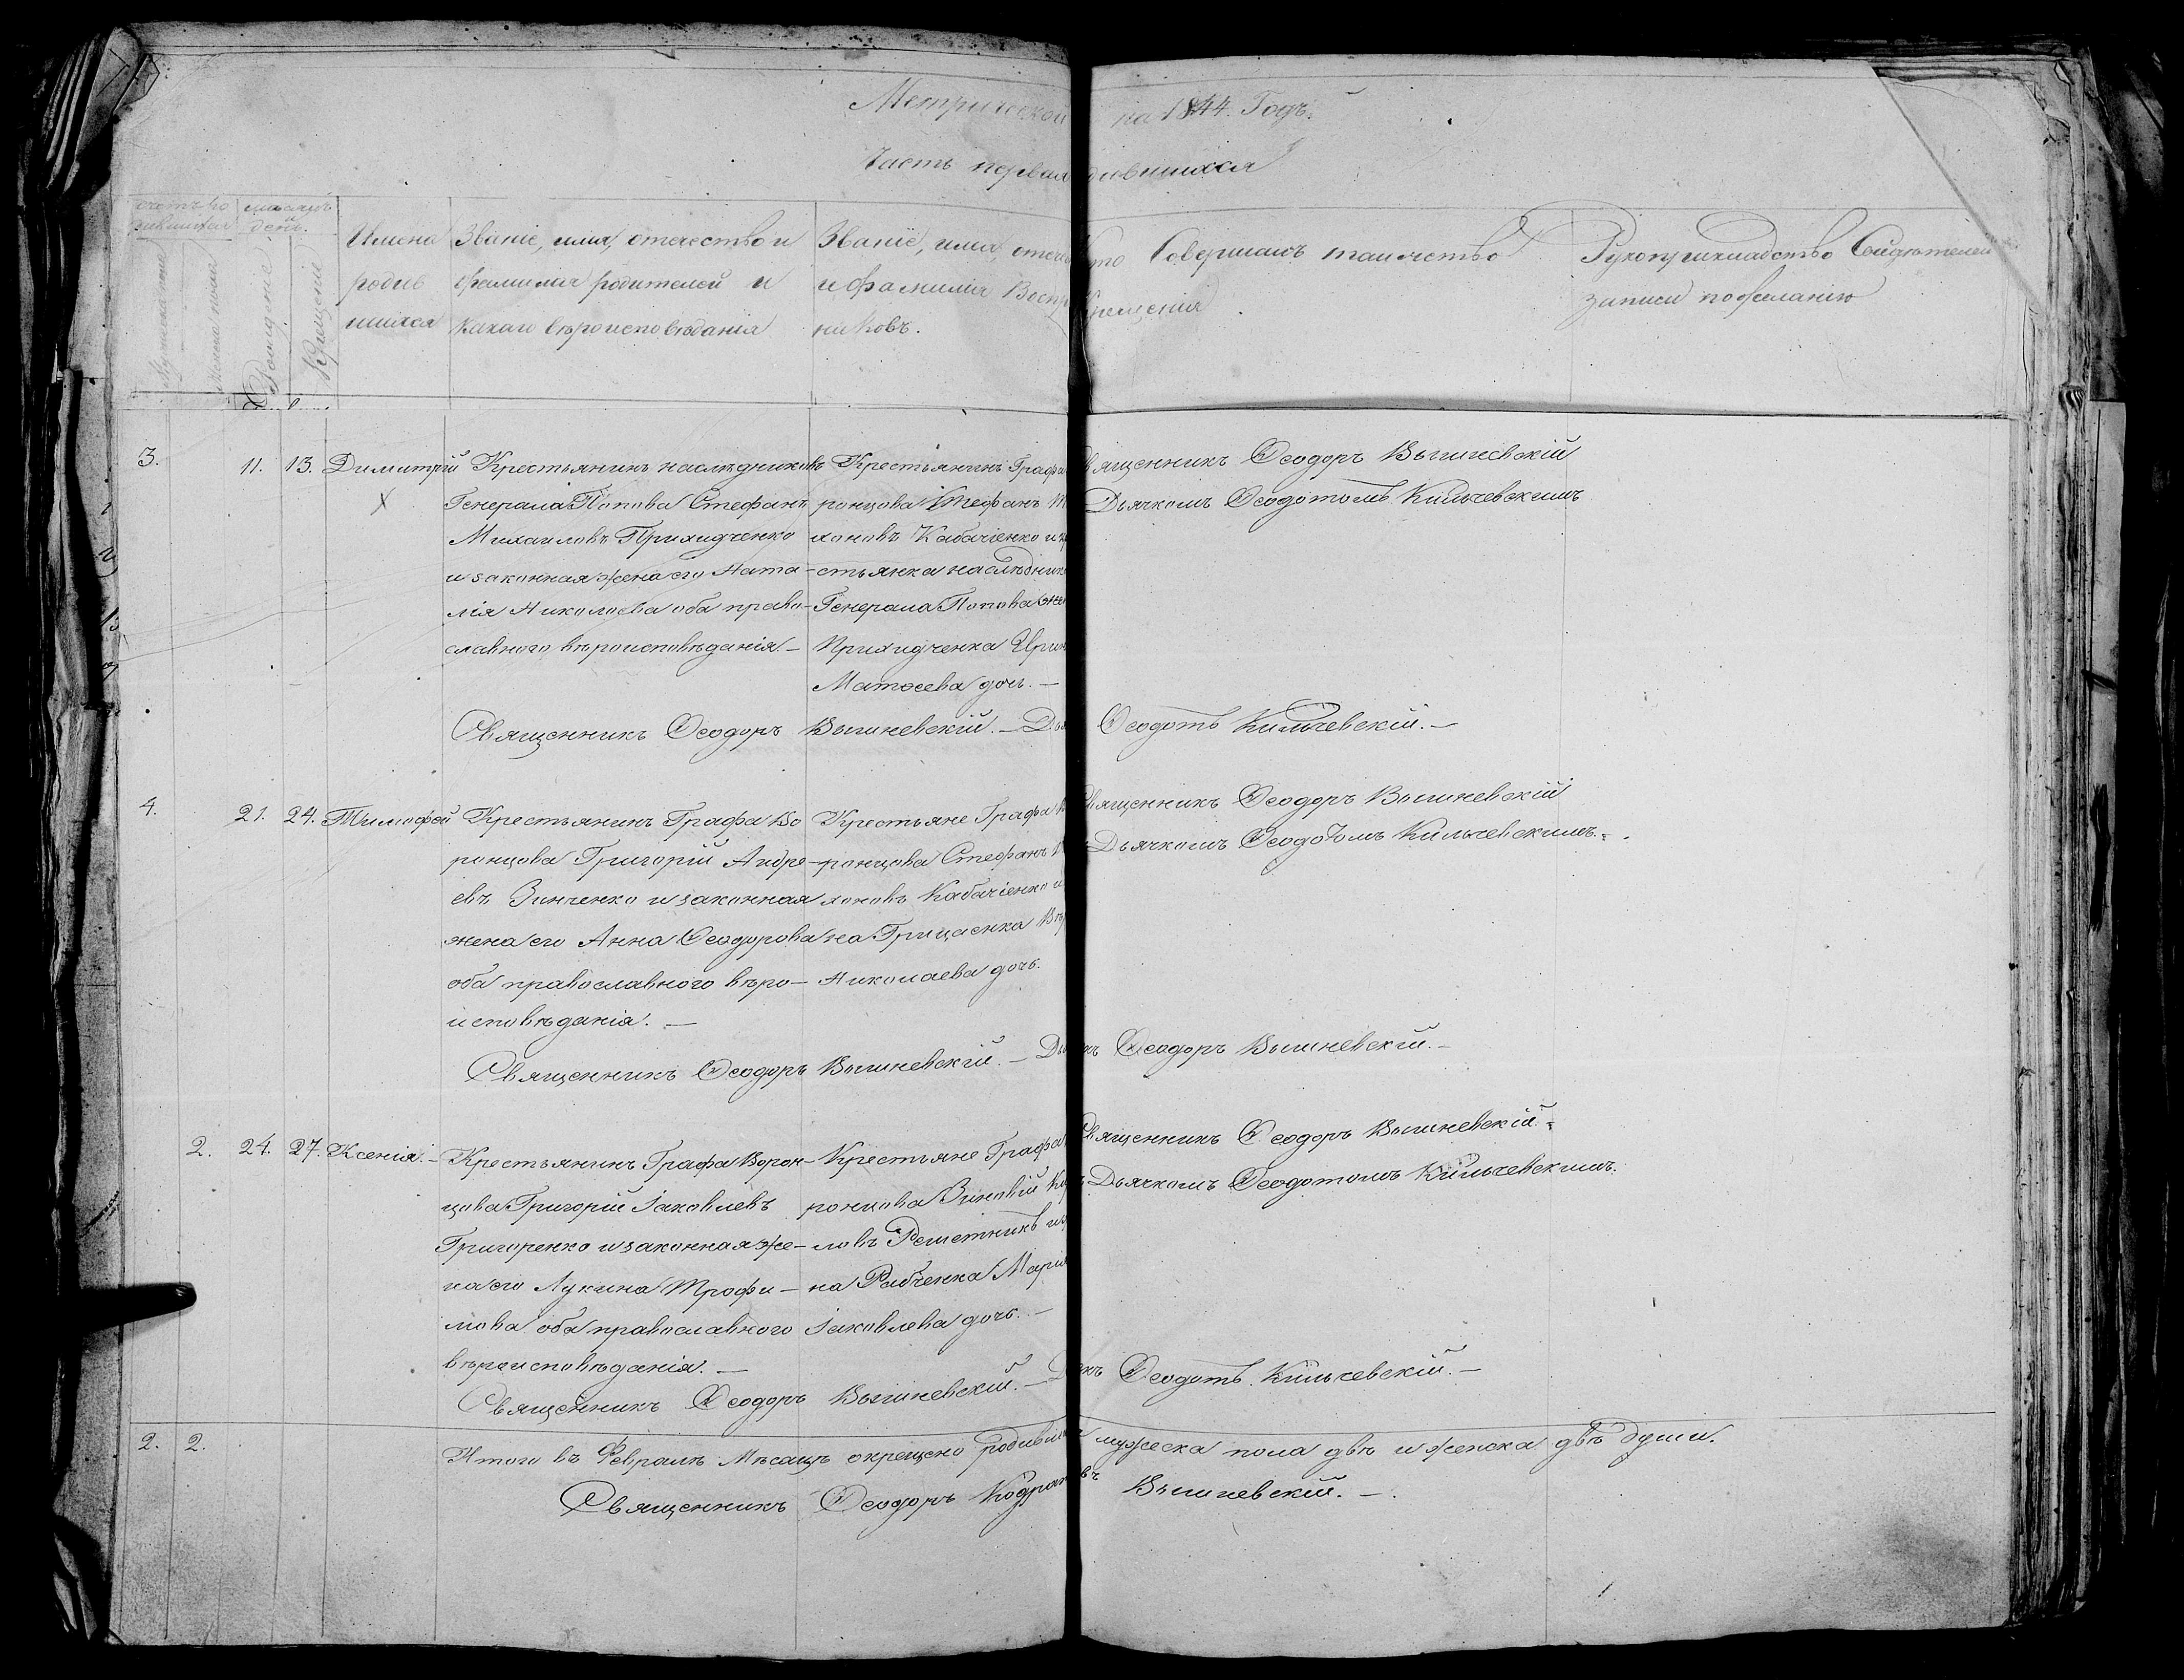 Метрической на 1844. Годъ.
Часть первая
Имена родив шихся
Званіе, имя, отечество и фамилія родителей и Какаго вѣроисповѣданія
Званіе, имя, и фамилія ников.
Совершалъ таинство Крещенія
Рукоприкладство Свидѣтелей записи по желанію
3. 11. 13. Димитрій
Крестьянинъ наслѣдниковъ
Генерала Попова Стефанъ
Михаиловъ Прихидченко
и законная жена его Ната-
лія Николаева оба право-
славного вѣроисповѣданія. —
Крестьянинъ Графа
ронцова Стефанъ
хоновъ Кабаченко и
стьянка наслѣдник
Генерала Попова
Прихидченка Ирин
Матвеева дочь. —
Священникъ Ѳеодоръ Вышневскій
Дьячкомъ Ѳеодотомъ Кильчевскимъ
Священникъ Ѳеодоръ Вышневскій. — Ѳеодотъ Кильчевскій. —
4. 21. 24. Тимофей
Крестьянинъ Графа Во
ронцова Григорій Андре-
евъ Зинченко и законная
жена его Анна Ѳеодорова
оба православного вѣро-
исповѣданія. —
Крестьяне Графа
ронцова Стефанъ
хоновъ Кабаченко и
на Грицаенка
Николаева дочь.
Священникъ Ѳеодоръ Вышневскій
Дьячкомъ Ѳеодотомъ Кильчевскимъ. -
Священникъ Ѳеодоръ Вышневскій. — Ѳеодоръ Вышневскій. —
2. 24. 27. Ксенія. -
Крестьянинъ Графа Ворон-
цова Григорій Іаковлевъ
Григоренко и законная же-
на его Лукина Трофи-
мова оба православного
вѣроисповѣданія. —
Крестьяне Графа
ронцова Зиновій
ловъ Решетникъ и
на Рабченка Марія
Іаковлева дочь. —
Священникъ Ѳеодоръ Вышневскій. -
Дьячкомъ Ѳеодотомъ Кильчевскимъ.
Священникъ Ѳеодоръ Вышневскій. — Ѳеодотъ Кильчевскій. —
2. 2. Итого въ Февралѣ Мѣсяцѣ окрещено мужеска пола двѣ и женска двѣ души.
Священникъ Ѳеодоръ Вышневскій. —